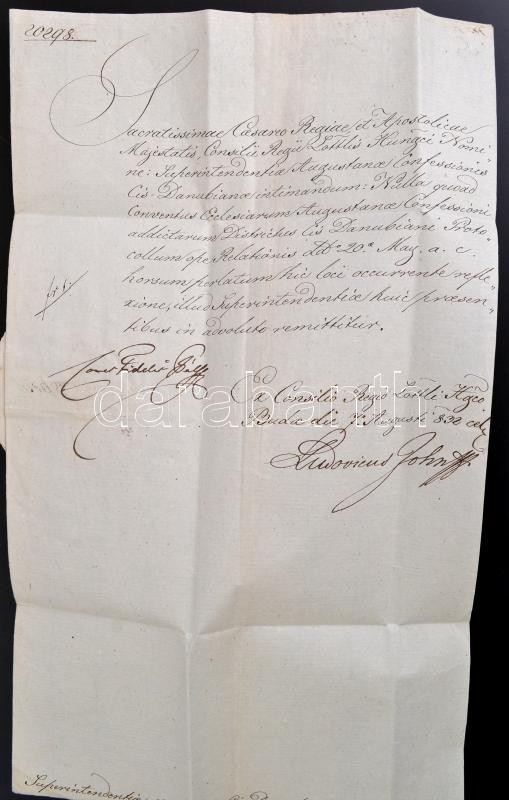 20298.
Sacratissimae Caesareo Regiae et Apostolicae
Majestatis, Consilii Regii Lottlis Hungci Nomi¬
ne: Superintendentiae Augustanae Confessionis
Cis-Danubianae intimandum: Nulla quoad
Conventus Ecclesiarum Augustanae Confessioni
addictarum Districtus Cis Danubiani Proto¬
collum ope Relationis ddto 20a May, a. c.
horsum perlatum hic loci occurrente refle¬
xione, illud Superintendentiae huic praesen¬
tibus in advoluto remittitur.
Comes Fidelis Pálffy
Ex Consilio Regio Lottli Hgco
Budae die 7 Augusti 832 cel.
Ludovicus John
darabanth
Superintendentiae